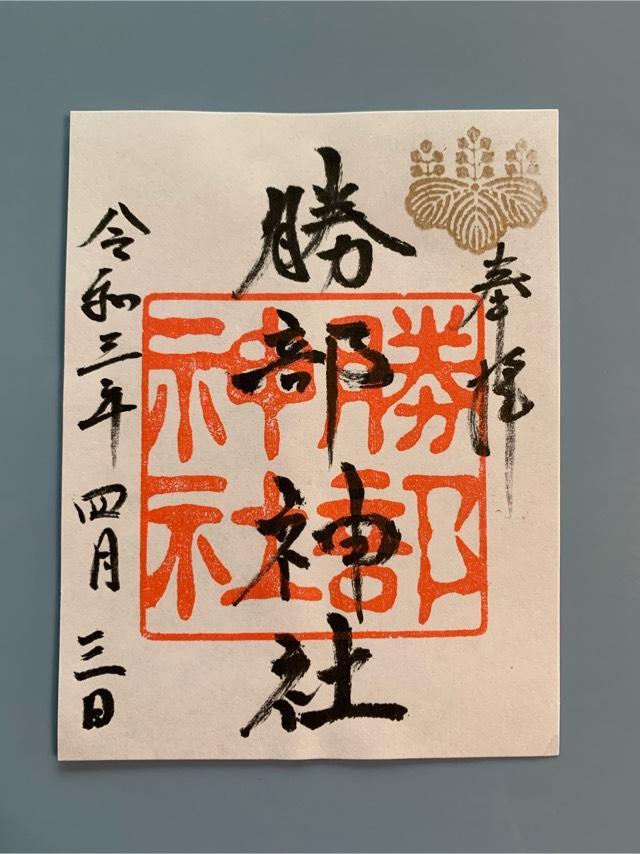 奉拝
勝部神社
勝部
神社
令和三年 四月 三日